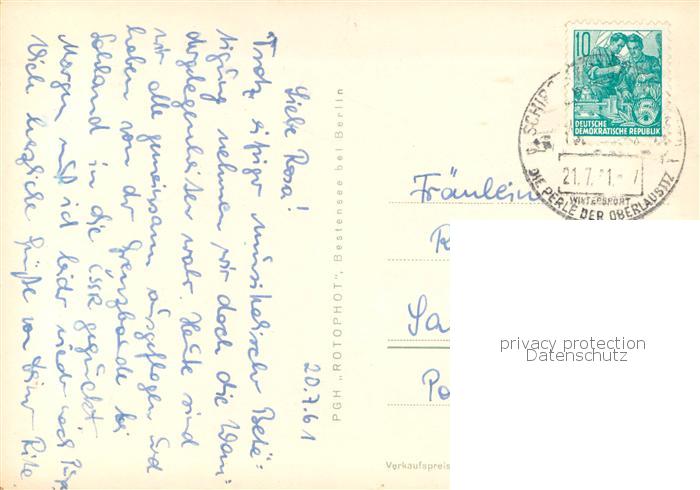 20.7.61
Liebe Rosa!
Trotz eifriger musikalischer Betä-
tigung nehmen wir doch die Wan-
dergelegenheiten wahr. Heute sind
wir alle gemeinsam ausgeflogen und
haben von der Grenzbaude bei
Sohland in die ČSSR geguckt.
Morgen muß ich leider wieder nach
Dich herzliche Grüße von Deiner Rita
PGH „ROTOPHOT", Bestensee bei Berlin
10
DEUTSCHE
DEMOKRATISCHE REPUBLIK
21.7.61
WINTERSPORT
DIE PERLE DER OBERLAUSITZ
Fräulein
Verkaufspreis
privacy protection
Datenschutz